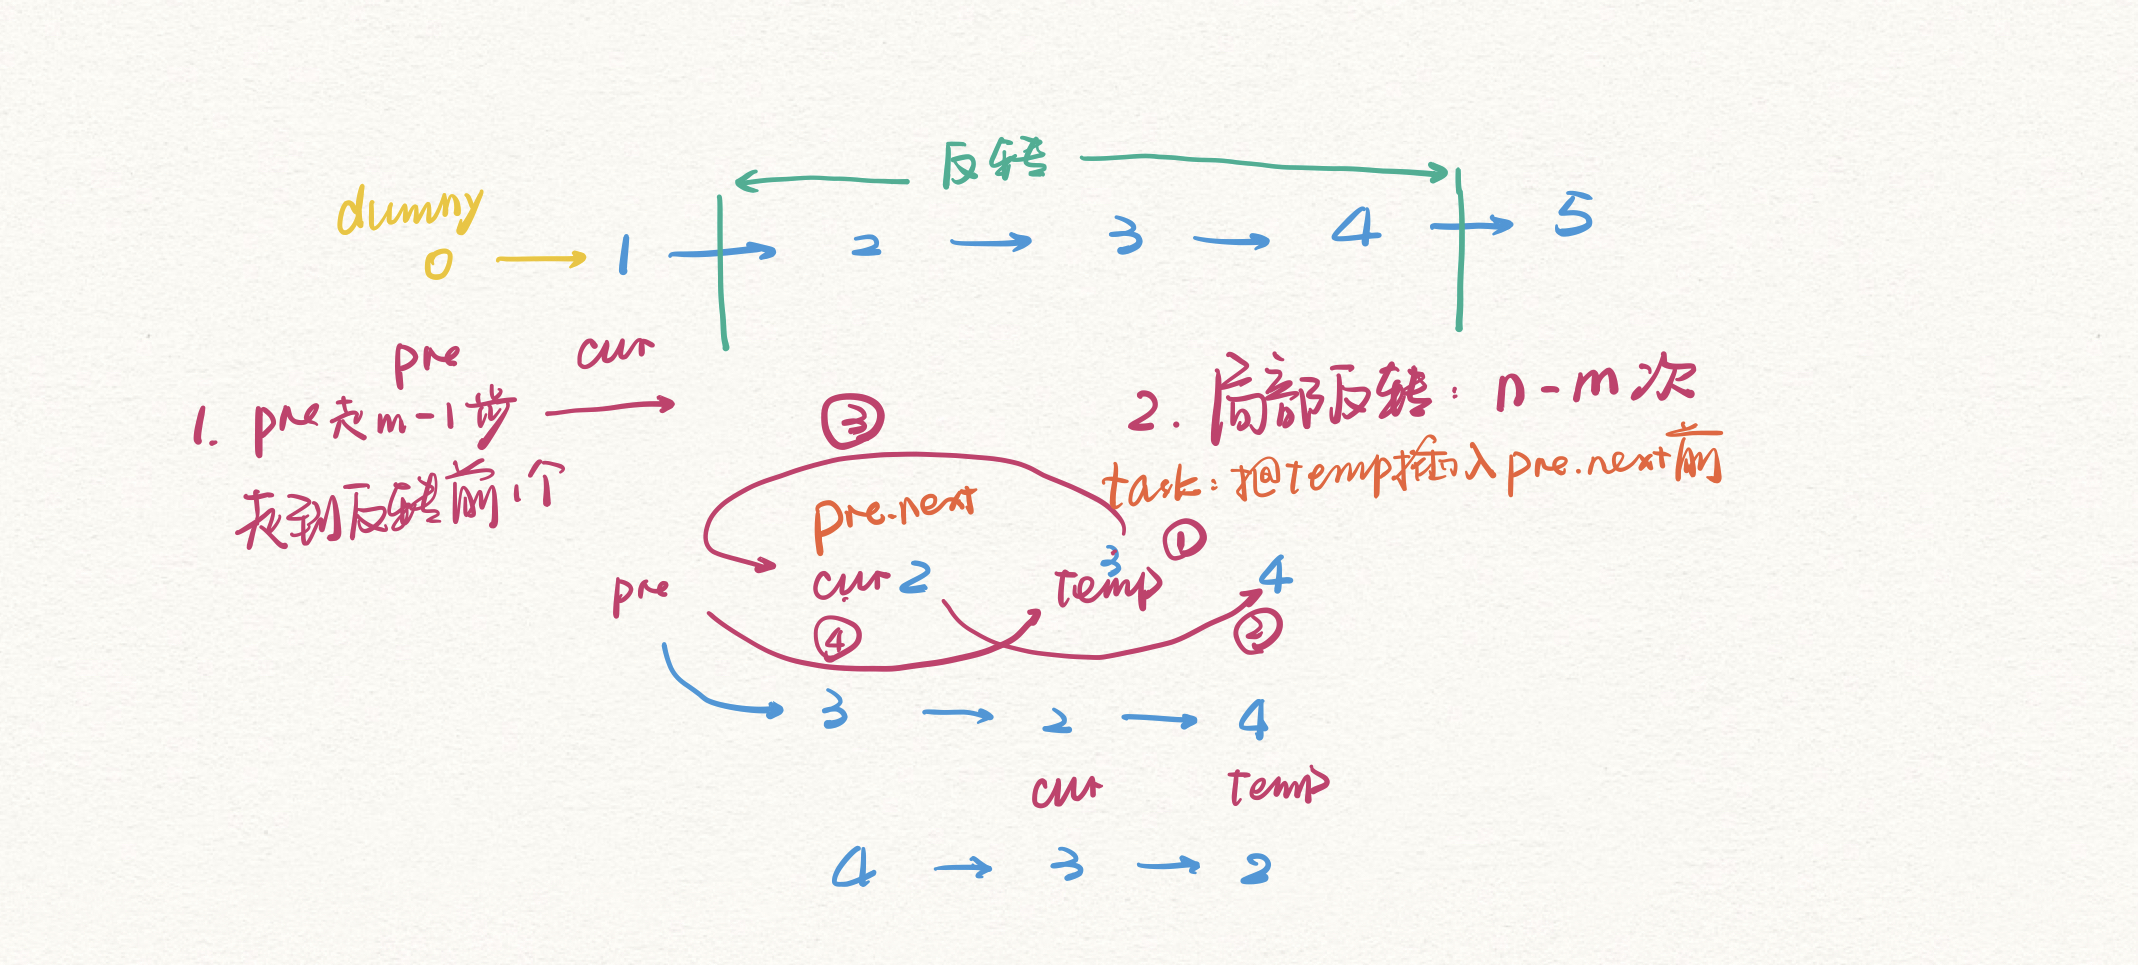 反转
dummy
0 → 1 → 2 → 3 → 4 → 5
pre cur
1. pre走m-1步 →
找到反转前1个
2. 局部反转: n-m次
task: 把temp插入pre.next前
③
pre.next
①
pre cur 2 temp 3 4
④ ②
3 → 2 → 4
cur temp
4 → 3 → 2